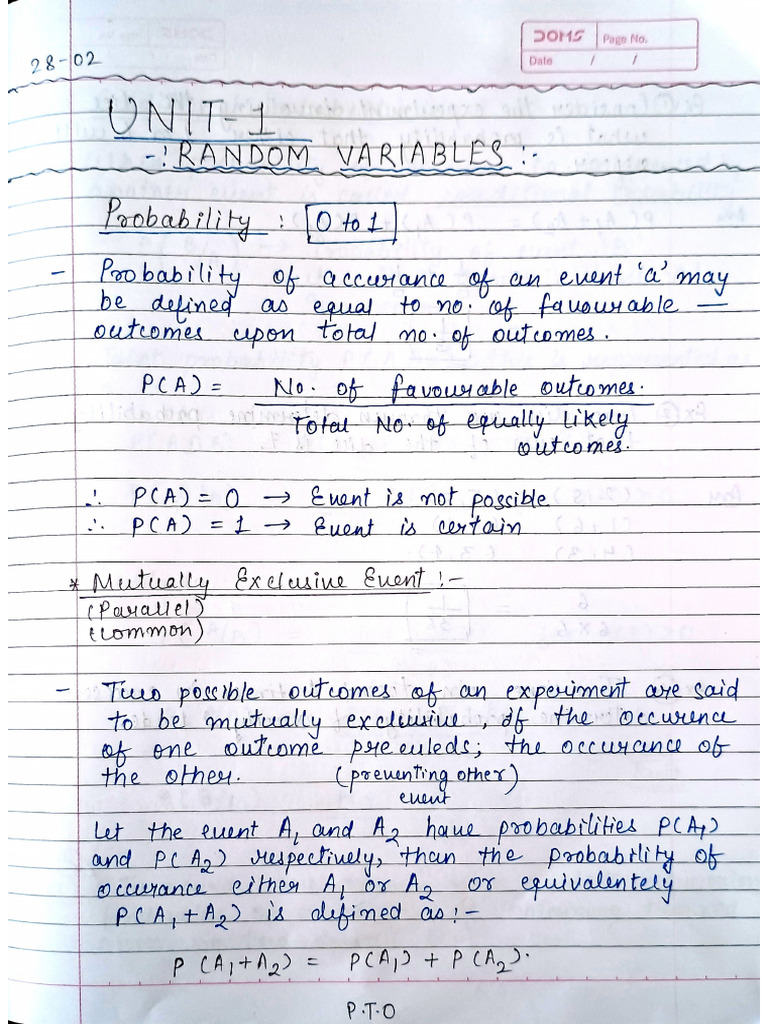 28-02
DOMS Page No.
Date / /
UNIT-1
-:RANDOM VARIABLES:-
Probability : 0 to 1
- Probability of accurance of an event 'a' may
be defined as equal to no. of favourable —
outcomes upon total no. of outcomes.
P(A) = No. of favourable outcomes.
Total No. of equally likely
outcomes.
∴ P(A) = 0 → Event is not possible
∴ P(A) = 1 → Event is certain
* Mutually Exclusive Event :-
(Parallel)
(common)
- Two possible outcomes of an experiment are said
to be mutually exclusive, if the occurence
of one outcome preeuleds; the occurance of
the other. (preventing other)
event
Let the event A₁ and A₂ have probabilities P(A₁)
and P(A₂) respectively, than the probability of
occurance either A₁ or A₂ or equivalentely
P(A₁+A₂) is defined as:-
P (A₁+A₂) = P(A₁) + P(A₂).
P.T.O